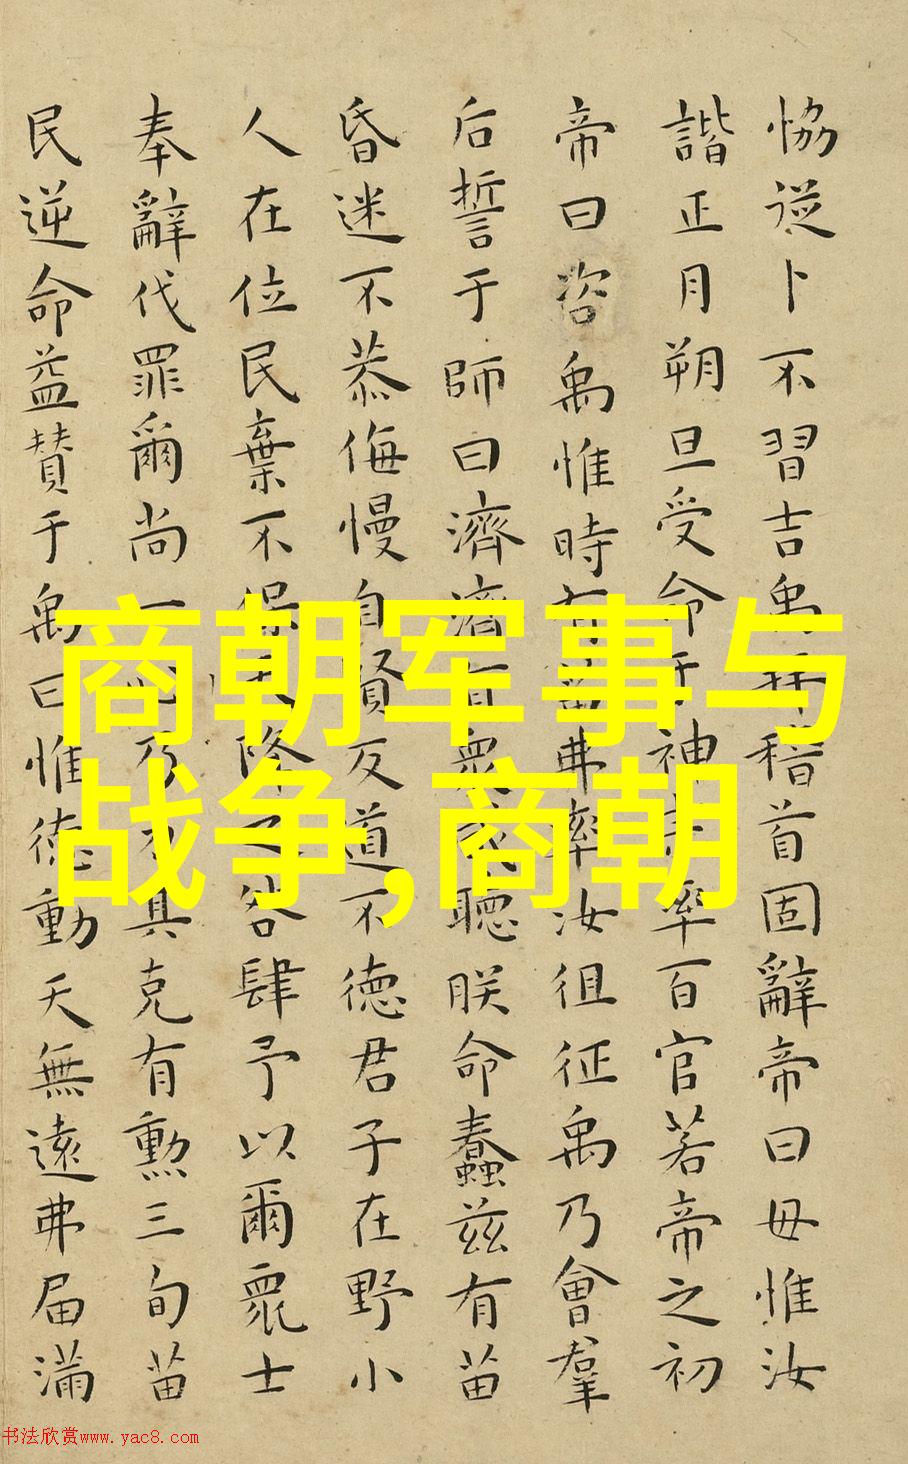 恊從卜不習吉禹拜稽首固辭帝曰毋惟汝
諧正月朔旦受命于神宗率百官若帝之初
帝曰咨禹惟時有苗弗率汝徂征禹乃會羣
后誓于師曰濟濟有衆咸聽朕命蠢茲有苗
昏迷不恭侮慢自賢反道不徳君子在野小
人在位民棄不保天降之咎肆予以爾衆士
奉辭伐罪爾尚一心乃力其克有勲三旬苗
民逆命益賛于禹曰惟徳動天無遠弗届滿
商朝军事与
战争,商朝
书法欣赏www.yac8.com